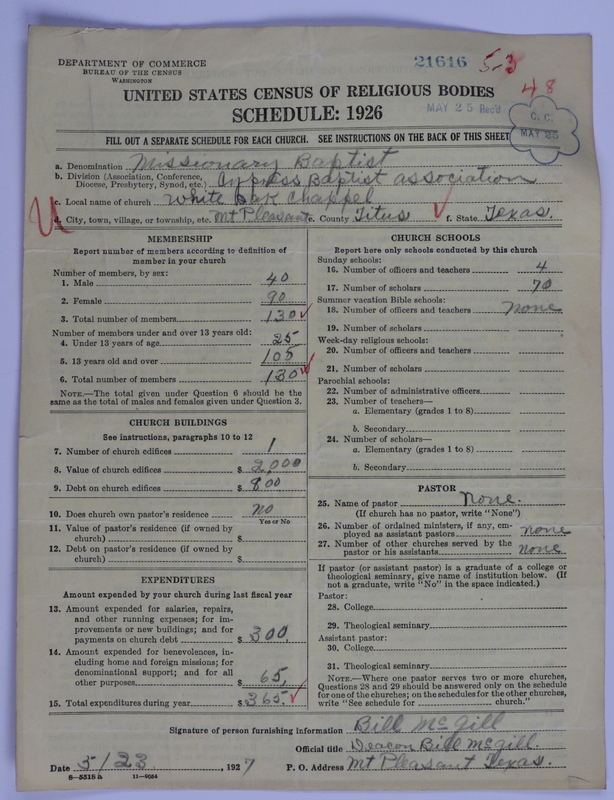 DEPARTMENT OF COMMERCE
BUREAU OF THE CENSUS
WASHINGTON
21616 5-3
48
UNITED STATES CENSUS OF RELIGIOUS BODIES
SCHEDULE: 1926
MAY 25 Rec'd
C. C.
MAY 25
FILL OUT A SEPARATE SCHEDULE FOR EACH CHURCH. SEE INSTRUCTIONS ON THE BACK OF THIS SHEET
a. Denomination Missionary Baptist
b. Division (Association, Conference, Diocese, Presbytery, Synod, etc.) Cypress Baptist association
c. Local name of church White Oak Chappel
d. City, town, village, or township, etc. Mt Pleasant e. County Titus f. State Texas.
MEMBERSHIP
Report number of members according to definition of
member in your church
Number of members, by sex:
1. Male 40
2. Female 90
3. Total number of members 130
Number of members under and over 13 years old:
4. Under 13 years of age 25
5. 13 years old and over 105
6. Total number of members 130
NOTE.—The total given under Question 6 should be
same as the total of males and females given under Question 3.
CHURCH BUILDINGS
See instructions, paragraphs 10 to 12
7. Number of church edifices 1
8. Value of church edifices $ 2,000
9. Debt on church edifices $ 800
10. Does church own pastor's residence no
Yes or No
11. Value of pastor's residence (if owned by
church) $
12. Debt on pastor's residence (if owned by
church) $
EXPENDITURES
Amount expended by your church during last fiscal year
13. Amount expended for salaries, repairs,
and other running expenses; for im-
provements or new buildings; and for
payments on church debt $ 300.
14. Amount expended for benevolences, in-
cluding home and foreign missions; for
denominational support; and for all
other purposes $ 65.
15. Total expenditures during year $ 365.
CHURCH SCHOOLS
Report here only schools conducted by this church
Sunday schools:
16. Number of officers and teachers 4
17. Number of scholars 70
Summer vacation Bible schools:
18. Number of officers and teachers none
19. Number of scholars
Week-day religious schools:
20. Number of officers and teachers
21. Number of scholars
Parochial schools:
22. Number of administrative officers
23. Number of teachers—
a. Elementary (grades 1 to 8)
b. Secondary
24. Number of scholars—
a. Elementary (grades 1 to 8)
b. Secondary
PASTOR
25. Name of pastor None.
(If church has no pastor, write "None")
26. Number of ordained ministers, if any, em-
ployed as assistant pastors none
27. Number of other churches served by the
pastor or his assistants none
If pastor (or assistant pastor) is a graduate of a college or
theological seminary, give name of institution below. (If
not a graduate, write "No" in the space indicated.)
Pastor:
28. College
29. Theological seminary
Assistant pastor:
30. College
31. Theological seminary
NOTE.—Where one pastor serves two or more churches,
Questions 28 and 29 should be answered only on the schedule
for one of the churches; on the schedules for the other churches,
write "See schedule for church."
Signature of person furnishing information Bill McGill
Official title Deacon Bill McGill.
Date 5/23, 1927 P. O. Address Mt Pleasant Texas.
8—5518 a 11—9054